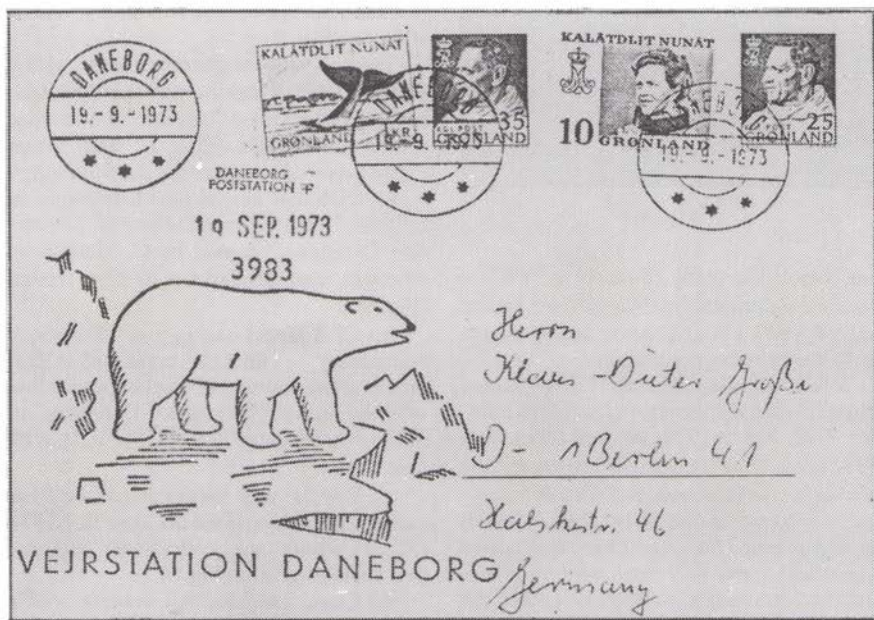 DANEBORG
19.-9.-1973
KALÂTDLIT NUNÂT
GRØNLAND 1 KR
35
GRØNLAND
DANEBORG
19.-9.-1973
KALÂTDLIT NUNÂT
10
GRØNLAND
25
GRØNLAND
19.-9.-1973
DANEBORG
POSTSTATION
19 SEP. 1973
3983
Herrn
Klaus-Dieter Große
D- 1 Berlin 41
46
Germany
VEJRSTATION DANEBORG